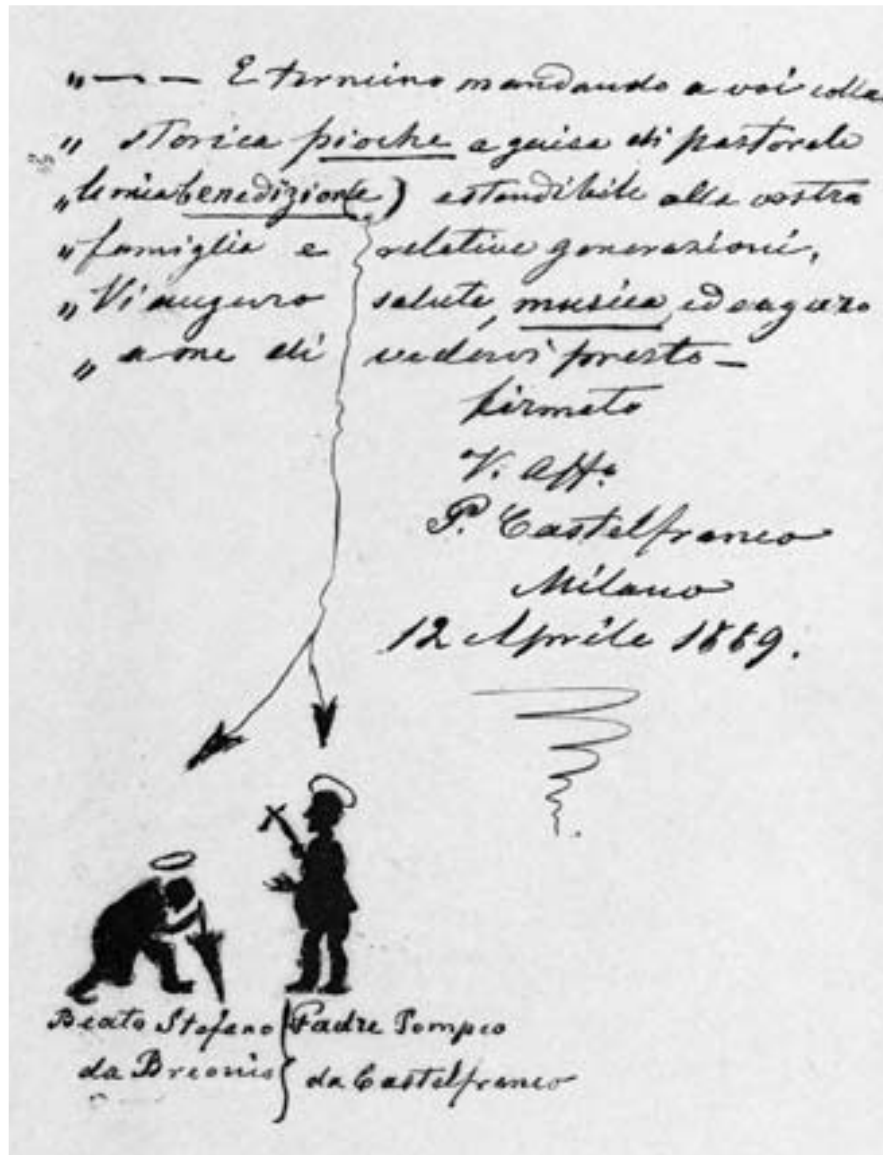 „ — — E termino mandando a voi colla
„ storica pioche a guisa di pastorale
„ la mia benedizion(e) estendibile alla vostra
„ famiglia e relative generazioni,
„ Vi auguro salute, musica, ed auguro
„ a me di vedervi presto —
firmato
V. aff.
P. Castelfranco
Milano
12 Aprile 1889.
Beato Stefano
da Breonis
Padre Pompeo
da Castelfranco